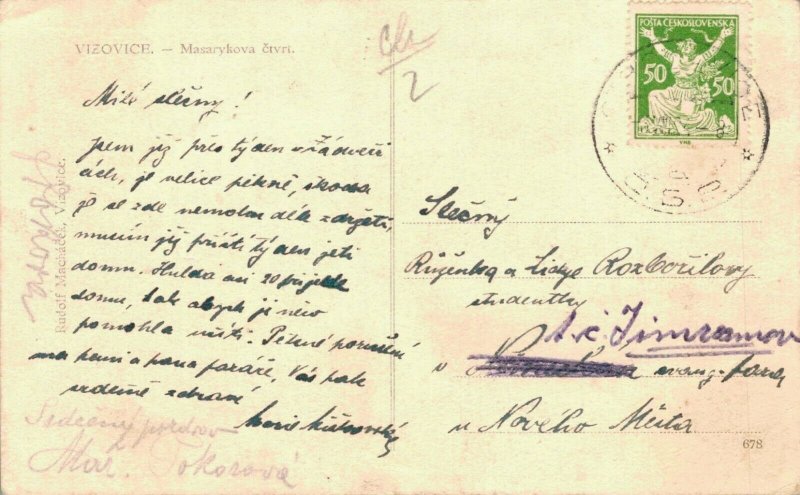 VIZOVICE. — Masarykova čtvrť.
Milé slečny!
jsem již přes týden v Řádveří
ách, je velice pěkně, škoda
že se zde nemohu dék zdržeti,
musím již příští týden jeti
domu. Hulda asi 20 přijede
domu, tak abych jí něco
pomohla ušíti. Pěkné poručení
na paní a pana faráře, Vás pak
srdečně zdraví
Marie
Srdečný pozdrav
Mar. Tokorová
Rudolf Macháček, Vizovice.
POŠTA ČESKOSLOVENSKÁ
50 50
Slečny
Růženka a Lidye Rozbořilovy
studentky
t. č. Jimramov
v evang. fara
u Nového Města
678